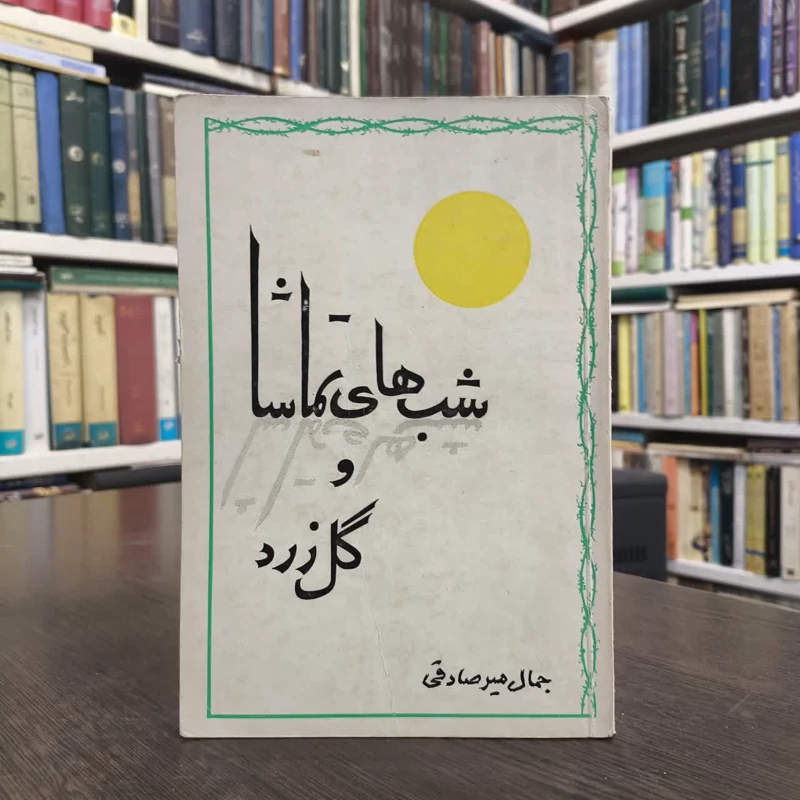 شب‌های تماشا
و
گل زرد
جمال میرصادقی